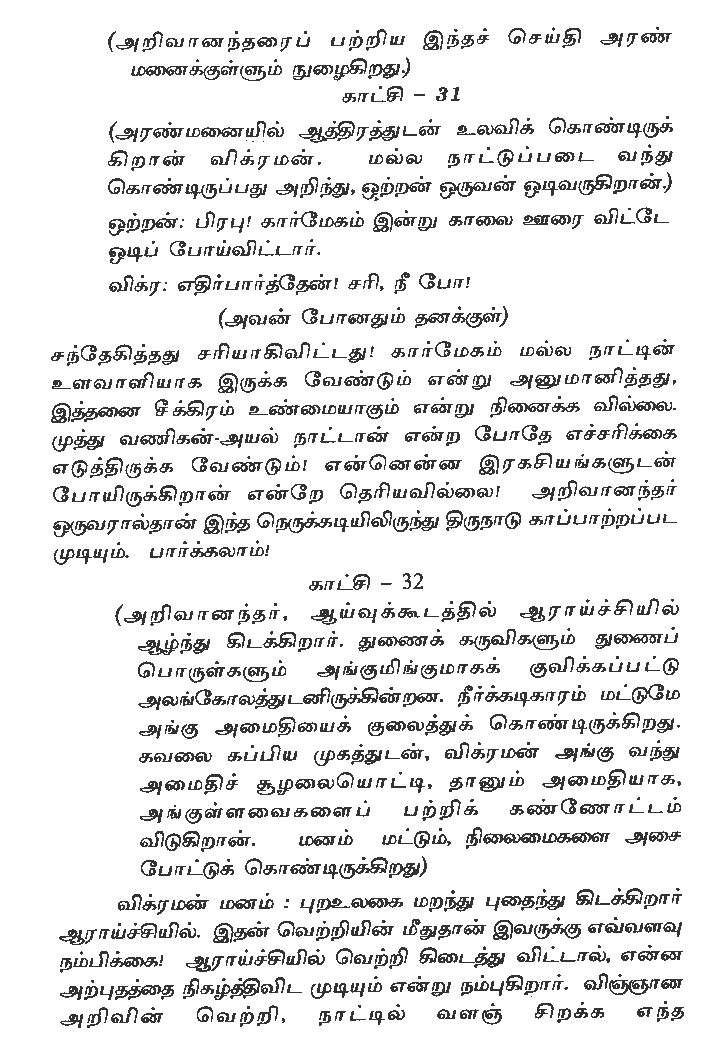 (அறிவானந்தரைப் பற்றிய இந்தச் செய்தி அரண்
மனைக்குள்ளும் நுழைகிறது.)
காட்சி – 31
(அரண்மனையில் ஆத்திரத்துடன் உலவிக் கொண்டிருக்
கிறான் விக்ரமன். மல்ல நாட்டுப்படை வந்து
கொண்டிருப்பது அறிந்து, ஒற்றன் ஒருவன் ஓடிவருகிறான்.)
ஒற்றன்: பிரபு! கார்மேகம் இன்று காலை ஊரை விட்டே
ஓடிப் போய்விட்டார்.
விக்ர: எதிர்பார்த்தேன்! சரி, நீ போ!
(அவன் போனதும் தனக்குள்)
சந்தேகித்தது சரியாகிவிட்டது! கார்மேகம் மல்ல நாட்டின்
உளவாளியாக இருக்க வேண்டும் என்று அனுமானித்தது,
இத்தனை சீக்கிரம் உண்மையாகும் என்று நினைக்க வில்லை.
முத்து வணிகன்-அயல் நாட்டான் என்ற போதே எச்சரிக்கை
எடுத்திருக்க வேண்டும்! என்னென்ன இரகசியங்களுடன்
போயிருக்கிறான் என்றே தெரியவில்லை! அறிவானந்தர்
ஒருவரால்தான் இந்த நெருக்கடியிலிருந்து திருநாடு காப்பாற்றப்பட
முடியும். பார்க்கலாம்!
காட்சி – 32
(அறிவானந்தர், ஆய்வுக்கூடத்தில் ஆராய்ச்சியில்
ஆழ்ந்து கிடக்கிறார். துணைக் கருவிகளும் துணைப்
பொருள்களும் அங்குமிங்குமாகக் குவிக்கப்பட்டு
அலங்கோலத்துடனிருக்கின்றன. நீர்க்கடிகாரம் மட்டுமே
அங்கு அமைதியைக் குலைத்துக் கொண்டிருக்கிறது.
கவலை கப்பிய முகத்துடன், விக்ரமன் அங்கு வந்து
அமைதிச் சூழலையொட்டி, தானும் அமைதியாக,
அங்குள்ளவைகளைப் பற்றிக் கண்ணோட்டம்
விடுகிறான். மனம் மட்டும், நிலைமைகளை அசை
போட்டுக் கொண்டிருக்கிறது)
விக்ரமன் மனம் : புறஉலகை மறந்து புதைந்து கிடக்கிறார்
ஆராய்ச்சியில். இதன் வெற்றியின் மீதுதான் இவருக்கு எவ்வளவு
நம்பிக்கை! ஆராய்ச்சியில் வெற்றி கிடைத்து விட்டால், என்ன
அற்புதத்தை நிகழ்த்திவிட முடியும் என்று நம்புகிறார். விஞ்ஞான
அறிவின் வெற்றி, நாட்டில் வளஞ் சிறக்க எந்த